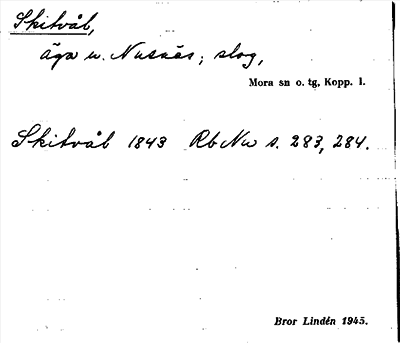 Skitvål,
äga u. Nusnäs; slog,
Mora sn o. tg, Kopp. l.
Skitvål 1843 Rb Nu s. 283, 284.
Bror Lindén 1945.